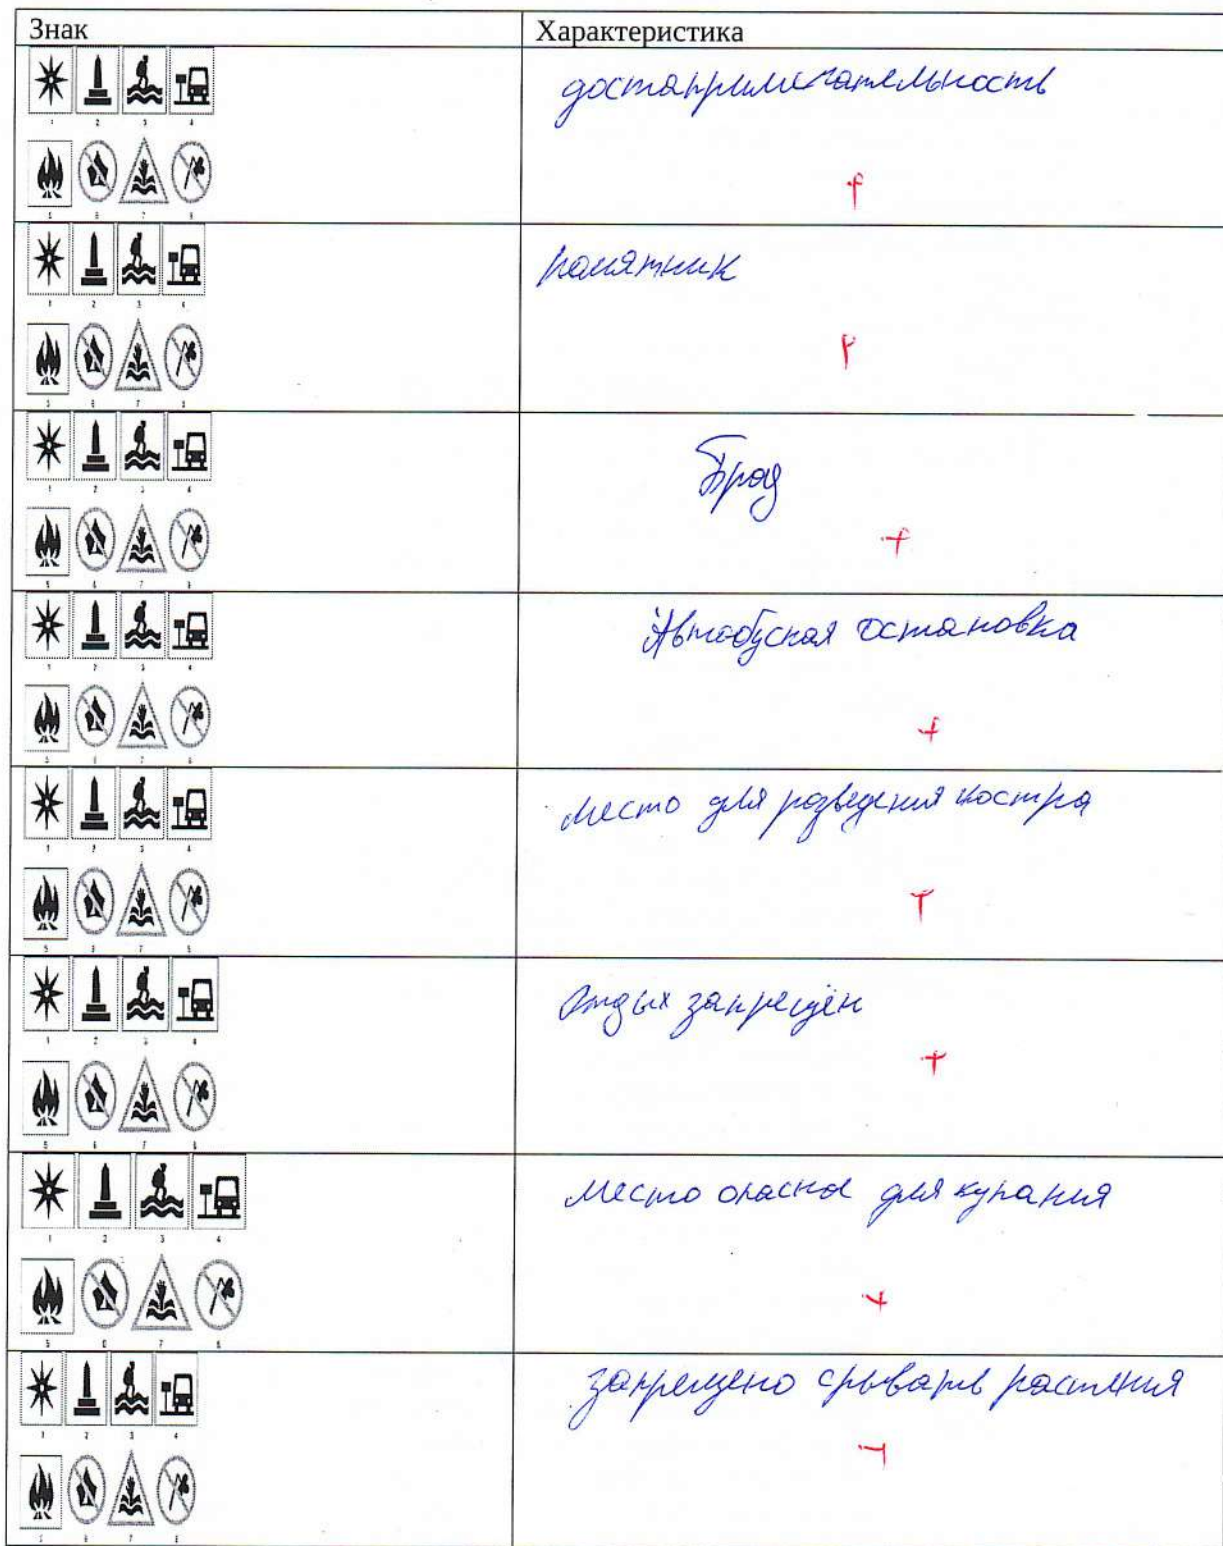 Знак Характеристика
достапримечательность
1 2 3 4
5 6 7 8
+
памятник
1 2 3 4
5 6 7 8
+
Брод
1 2 3 4
5 6 7 8
+
Автобусная остановка
1 2 3 4
5 6 7 8
+
место для розведения костра
1 2 3 4
5 6 7 8
+
Отдых запрещён
1 2 3 4
5 6 7 8
+
место опасное для купания
1 2 3 4
5 6 7 8
+
запрещено срывать растения
1 2 3 4
5 6 7 8
+